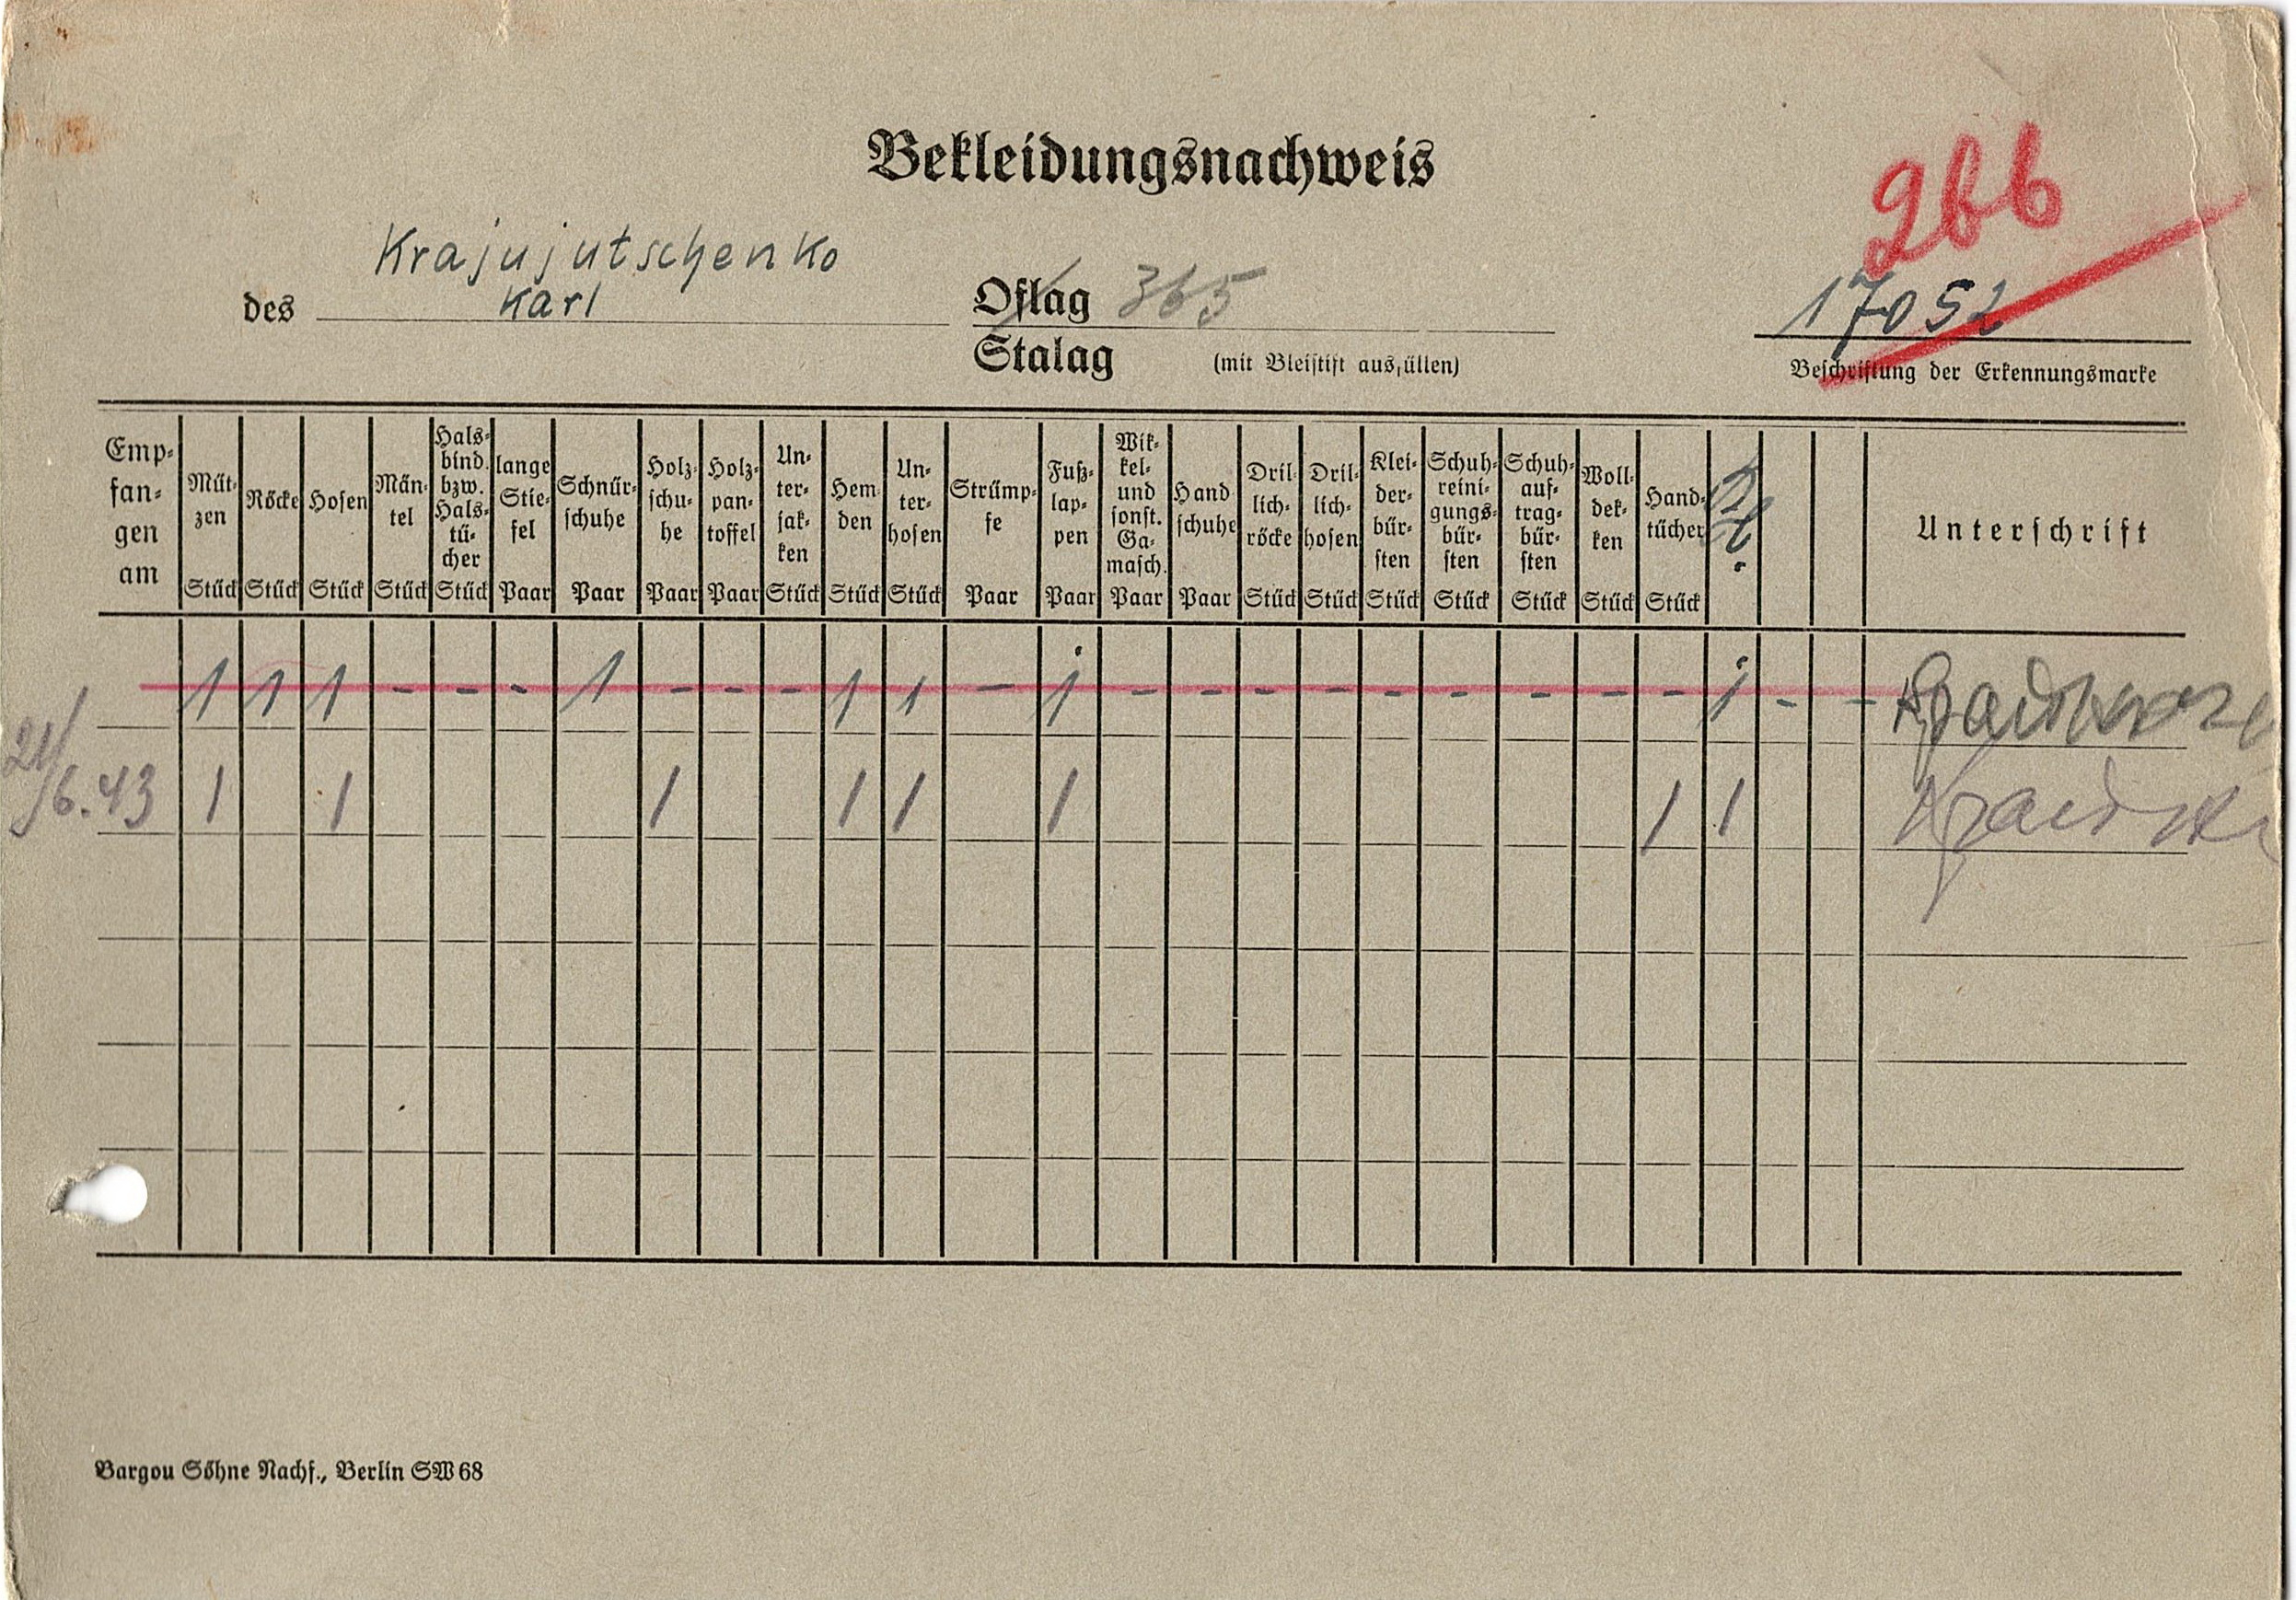 Bekleidungsnachweis
266
Krajujutschenko
des Karl
Oflag 365
Stalag (mit Bleistift ausfüllen)
17052
Beschriftung der Erkennungsmarke
Emp-fan-gen am
Müt-zen Stück
Röcke Stück
Hosen Stück
Män-tel Stück
Hals-bind. bzw. Hals-tü-cher Stück
lange Stie-fel Paar
Schnür-schuhe Paar
Holz-schu-he Paar
Holz-pan-toffel Paar
Un-ter-jak-ken Stück
Hem-den Stück
Un-ter-hosen Stück
Strümp-fe Paar
Fuß-lap-pen Paar
Wik-kel- und sonst. Ga-masch. Paar
Hand-schuhe Paar
Dril-lich-röcke Stück
Dril-lich-hosen Stück
Klei-der-bür-sten Stück
Schuh-reini-gungs-bür-sten Stück
Schuh-auf-trag-bür-sten Stück
Woll-dek-ken Stück
Hand-tücher Stück
Unterschrift
1 1 1 - - - 1 - - - 1 1 - 1 - - - - - - - - - 1 - -
21/6.43 1 1 1 1 1 1 1 1
Bargou Söhne Nachf., Berlin SW 68